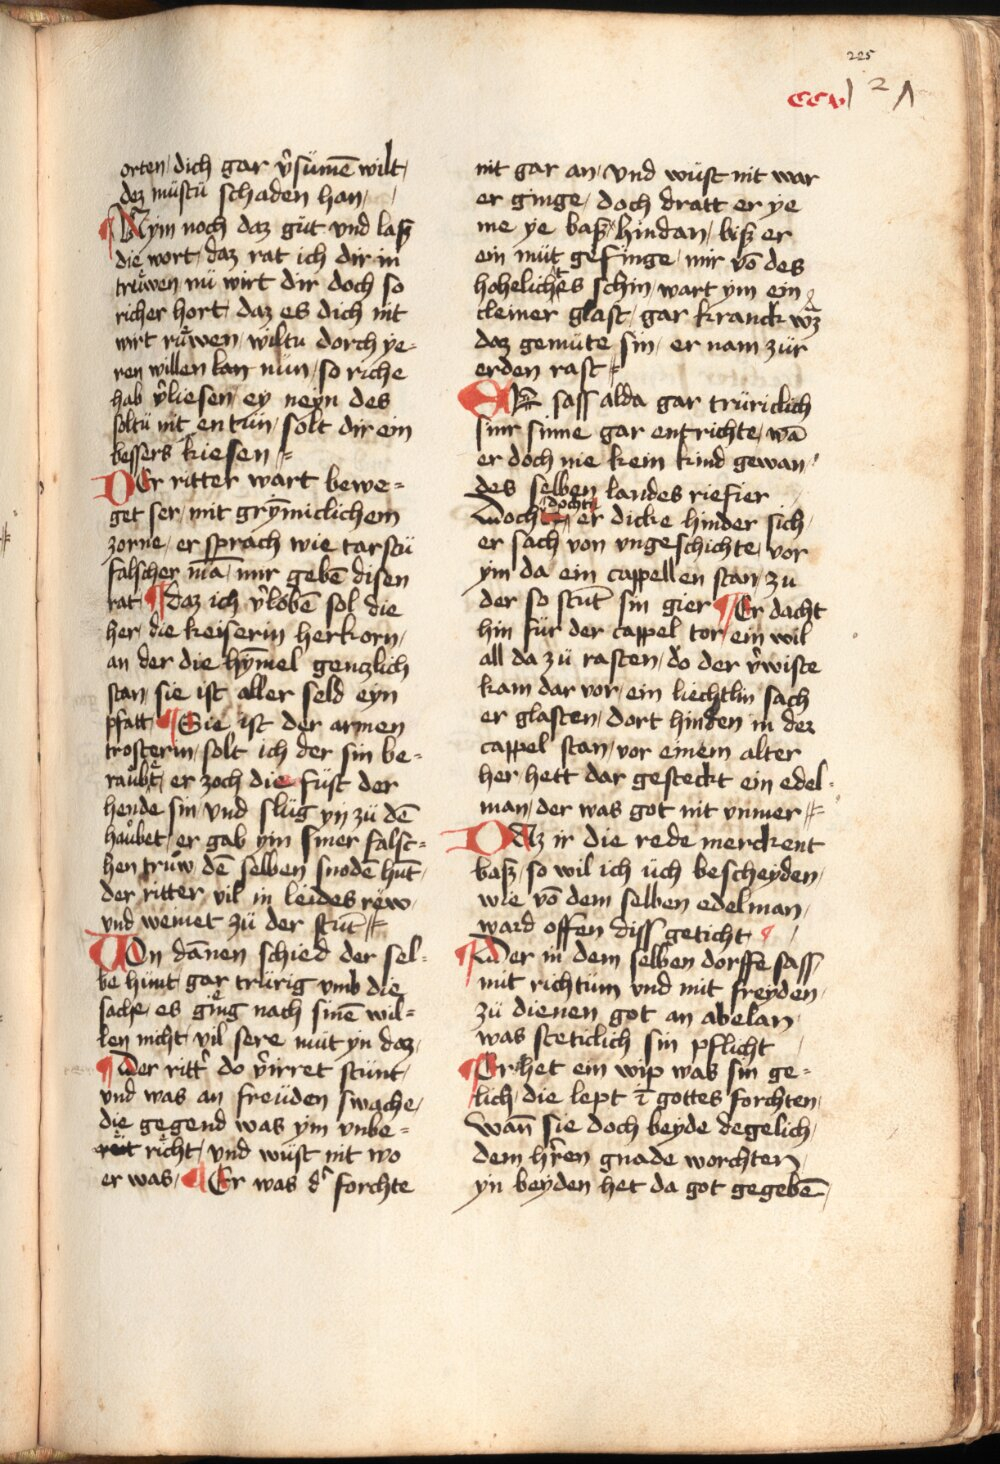 225
ccv 2 Λ
orten / dich gar v̂sümē wilt /
dez müstü schaden han /
¶ Nym noch daz güt vnd lasz
die wort / daz rat ich dir in
trüwen nü wirt dir doch so
richer hort / daz es dich nit
wirt rüwen / wiltu dorch ye-
ren willen kan nün / so riche
hab v̂liesen / ey neyn des
soltü nit en tün / solt dir ein
bessers kiesen =
DEr ritter wart bewe =
get ser / mit grȳmiclichem
zorne / er sprach wie tarstü
falscher mā / mir gebē disen
rat ¶ daz ich v̂lobē sol die
her / die keiserin herkorn /
an der die hȳmel gentzlich
stan / sie ist aller seld eyn
pfatt ¶ Sie ist der armen
trosterin / solt ich der sin be =
raubt / er zoch die füst der
hende sin / vnd slüg yn zü dē
haübet / er gab ym siner falsc =
hen trüw dē selben snodē hūt /
der ritter vil in leides rëw /
vnd weinet zü der stūt
VOn dānen schied der sel =
be hünt gar trürig vmb die
sache / es ging nach sinē wil =
len nicht / vil sere müt yn daz /
¶ Der ritt' do v̂irret stünt /
vnd was an freüden swache /
die gegend was ym vnbe =
richt / vnd wüst nit wo
er was / ¶ Er was d' forchte
nit gar an / vnd wüst nit war
er ginge / doch dratt er ye
me ye basz / hindan / bisz er
ein müt gefinge / mir vō des
hohelichtes schin / wart ym ein
cleiner glast / gar kranck wz
daz gemüte sin / er nam zür
erden rast
ER sass alda gar trüriclich
sinr sinne gar entrichte / wā
er doch nie kein kind gewan /
des selben landes riefier
Doch dochte er dicke hinder sich /
er sach von vngeschichte / vor
ym da ein cappellen stan / zu
der so stūt sin gier ¶ Er dacht
hin für der cappel tor / ein wil
all da zü rasten / do der v̂wiste
kam dar vor / ein liechtlin sach
er glasten / dort hinden in der
cappel stan / vor einem alter
her / hett dar gesteckt ein edel-
man / der was got nit vnmer
DAz ir die rede merckent
basz / so wil ich üch bescheyden /
wie vō dem selben edelman /
ward offen diss geticht ¶
¶ Der in dem selben dorffe sass /
mit richtüm vnd mit freyden /
zü dienen got an abelan /
was steticlich sin pflicht
¶ Er het ein wip was sin ge =
lich / die lept ī gottes forchten /
wan̄ sie doch beyde degelich /
dem hr̄en gnade worchten /
yn beyden het da got gegebē /